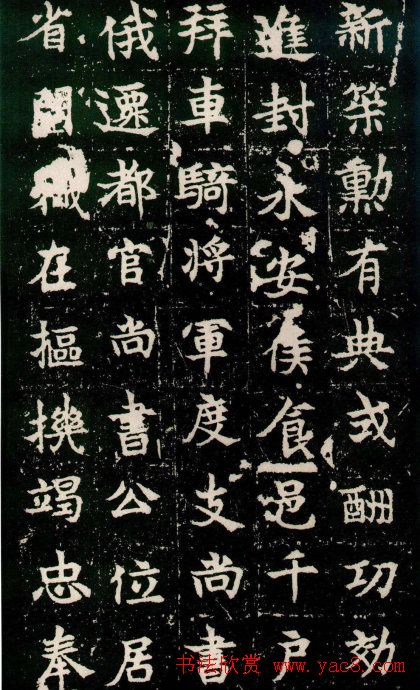 新策勳有典式酬功効
進封永安侯食邑千戶
拜車騎將軍度支尚書
俄遷都官尚書公位居
省在樞機竭忠奉
书法欣赏 www.yac8.com